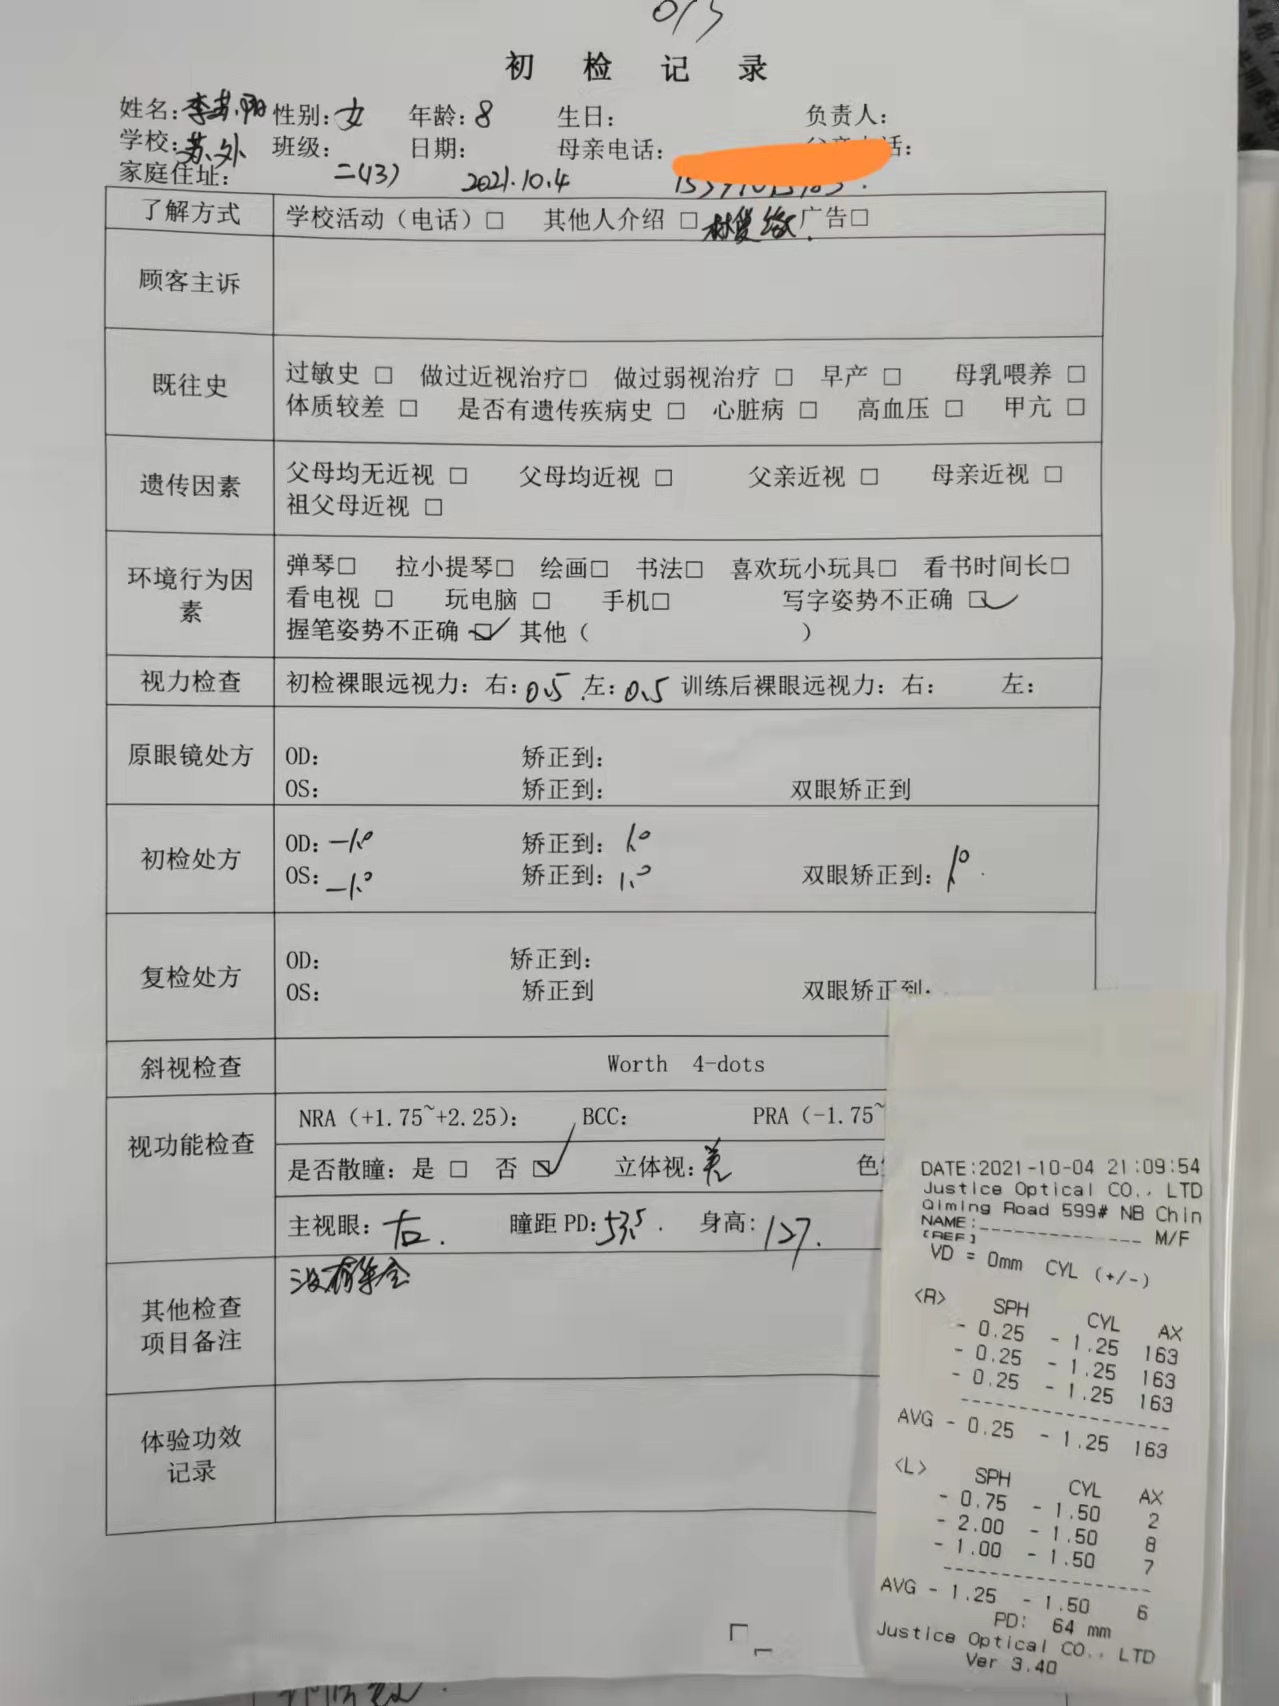 初 检 记 录
姓名: 性别:女 年龄:8 生日: 负责人:
学校:苏外 班级: 日期: 母亲电话: 话:
家庭住址: 二(13) 2021.10.4
了解方式 学校活动（电话）□ 其他人介绍 □ 广告□
顾客主诉
既往史 过敏史 □ 做过近视治疗□ 做过弱视治疗 □ 早产 □ 母乳喂养 □
体质较差 □ 是否有遗传疾病史 □ 心脏病 □ 高血压 □ 甲亢 □
遗传因素 父母均无近视 □ 父母均近视 □ 父亲近视 □ 母亲近视 □
祖父母近视 □
环境行为因素 弹琴□ 拉小提琴□ 绘画□ 书法□ 喜欢玩小玩具□ 看书时间长□
看电视 □ 玩电脑 □ 手机□ 写字姿势不正确 ☑
握笔姿势不正确 ☑ 其他（ ）
视力检查 初检裸眼远视力: 右:0.5 左:0.5 训练后裸眼远视力: 右: 左:
原眼镜处方 OD: 矫正到:
OS: 矫正到: 双眼矫正到
初检处方 OD:-1.0 矫正到:1.0
OS:-1.0 矫正到:1.0 双眼矫正到:1.0
复检处方 OD: 矫正到:
OS: 矫正到 双眼矫正到:
斜视检查 Worth 4-dots
视功能检查 NRA（+1.75~+2.25）: BCC: PRA（-1.75~
是否散瞳: 是 □ 否 ☑ 立体视: 色
主视眼:右. 瞳距 PD:53.5. 身高:127.
其他检查项目备注 没有集合
体验功效记录
DATE:2021-10-04 21:09:54
Justice Optical CO., LTD
Qiming Road 599# NB Chin
NAME:______________ M/F
[REF]
VD = 0mm CYL (+/-)
<R> SPH CYL AX
- 0.25 - 1.25 163
- 0.25 - 1.25 163
- 0.25 - 1.25 163
AVG - 0.25 - 1.25 163
<L> SPH CYL AX
- 0.75 - 1.50 2
- 2.00 - 1.50 8
- 1.00 - 1.50 7
AVG - 1.25 - 1.50 6
PD: 64 mm
Justice Optical CO., LTD
Ver 3.40